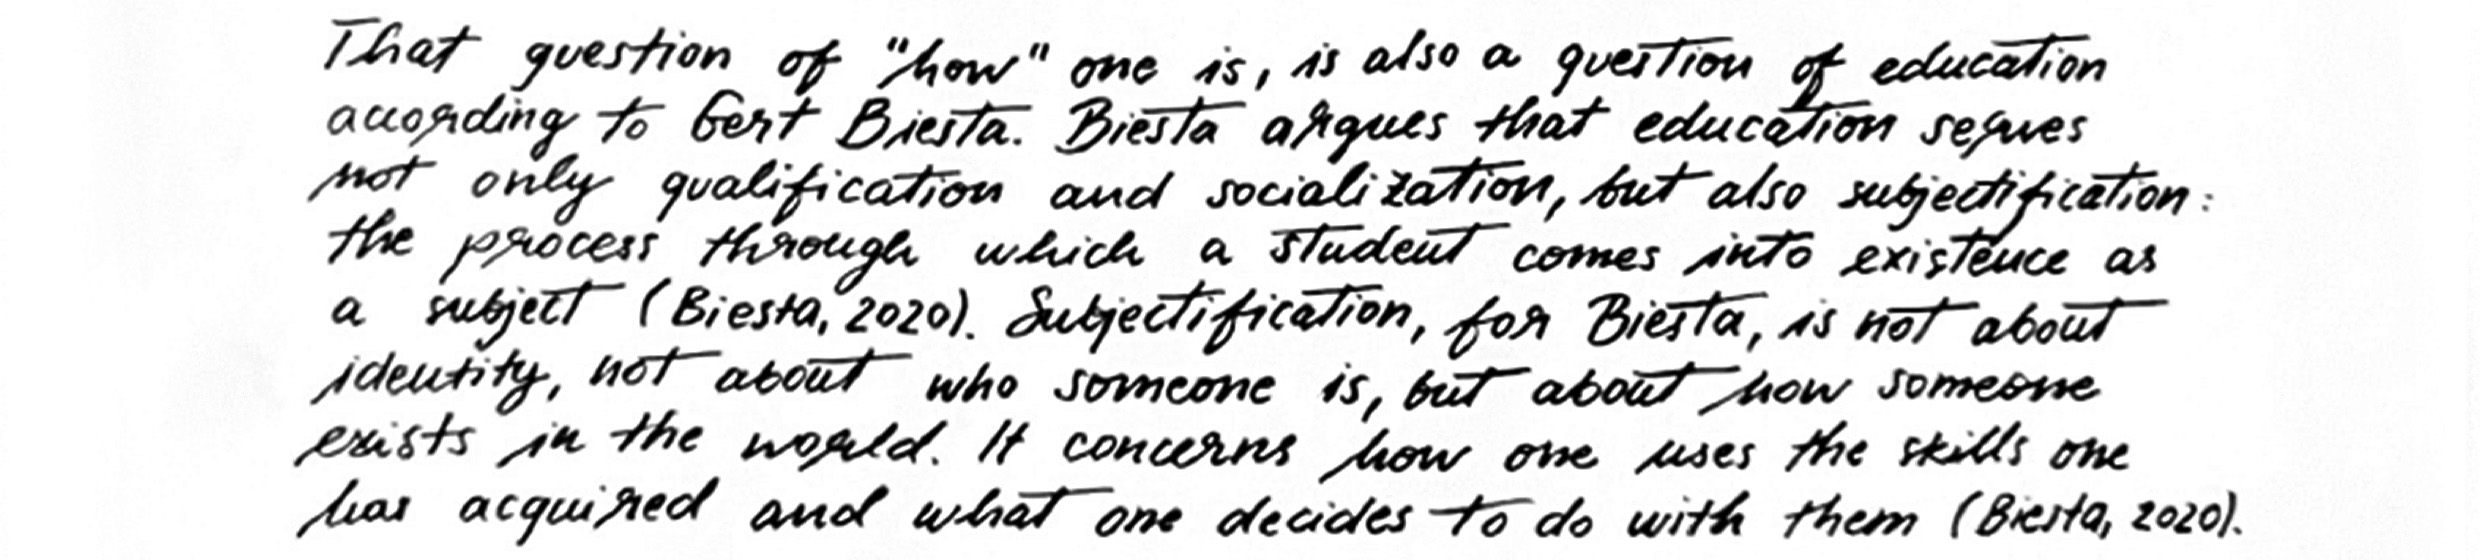 That question of "how" one is, is also a question of education
according to Gert Biesta. Biesta argues that education serves
not only qualification and socialization, but also subjectification:
the process through which a student comes into existence as
a subject (Biesta, 2020). Subjectification, for Biesta, is not about
identity, not about who someone is, but about how someone
exists in the world. It concerns how one uses the skills one
has acquired and what one decides to do with them (Biesta, 2020).